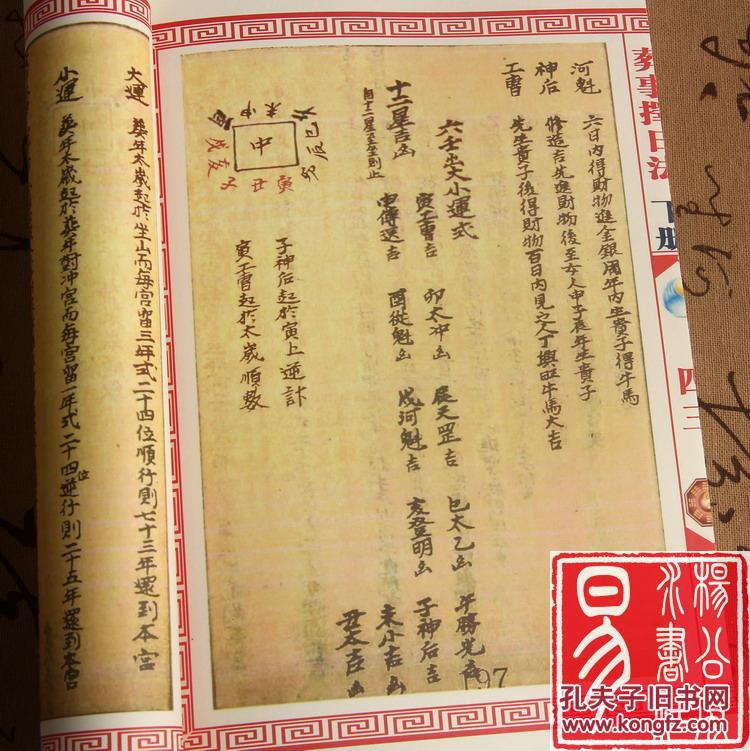 葬事擇日法 下册 四三
河魁 六日内得財物進金銀周年内生貴子得牛馬
神后 修造吉先進財物後至女人申子辰年生貴子
工曹 先生貴子後得財物百日内見之人丁興旺牛馬大吉
六壬出大小運式
寅工曹吉 卯太冲凶 辰天罡吉 巳太乙凶 午勝光吉
十二星吉凶
自十二星至坐則止
申傳送吉 酉從魁凶 戌河魁吉 亥登明凶 子神后吉
未小吉凶
丑大吉凶
午 巳 辰 卯
未 申
中
寅 丑 子
戌
子神后起於寅上逆計
寅工曹起於太歲順數
197
大運 葬年太歲起於坐山而每宮留三年式二十四位順行則七十三年還到本宮
小運 葬年太歲起於葬年對冲宮而每宮留一年式二十四位逆行則二十五年還到本宮
楊公
水書
易
孔夫子旧书网
www.kongfz.com